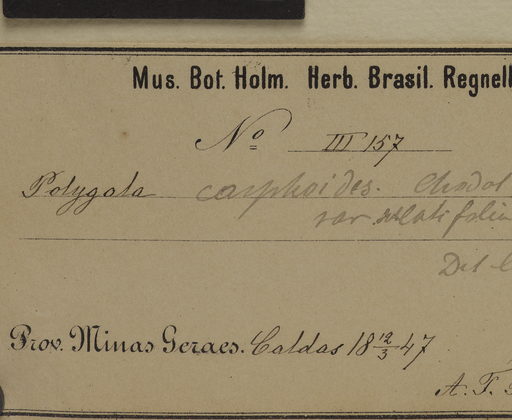 Mus. Bot. Holm. Herb. Brasil. Regnell
No III 157
Polygala carphoides. Chodat
var. latifolia
Det
Prov. Minas Geraes. Caldas 18 12/3 47
A. F.